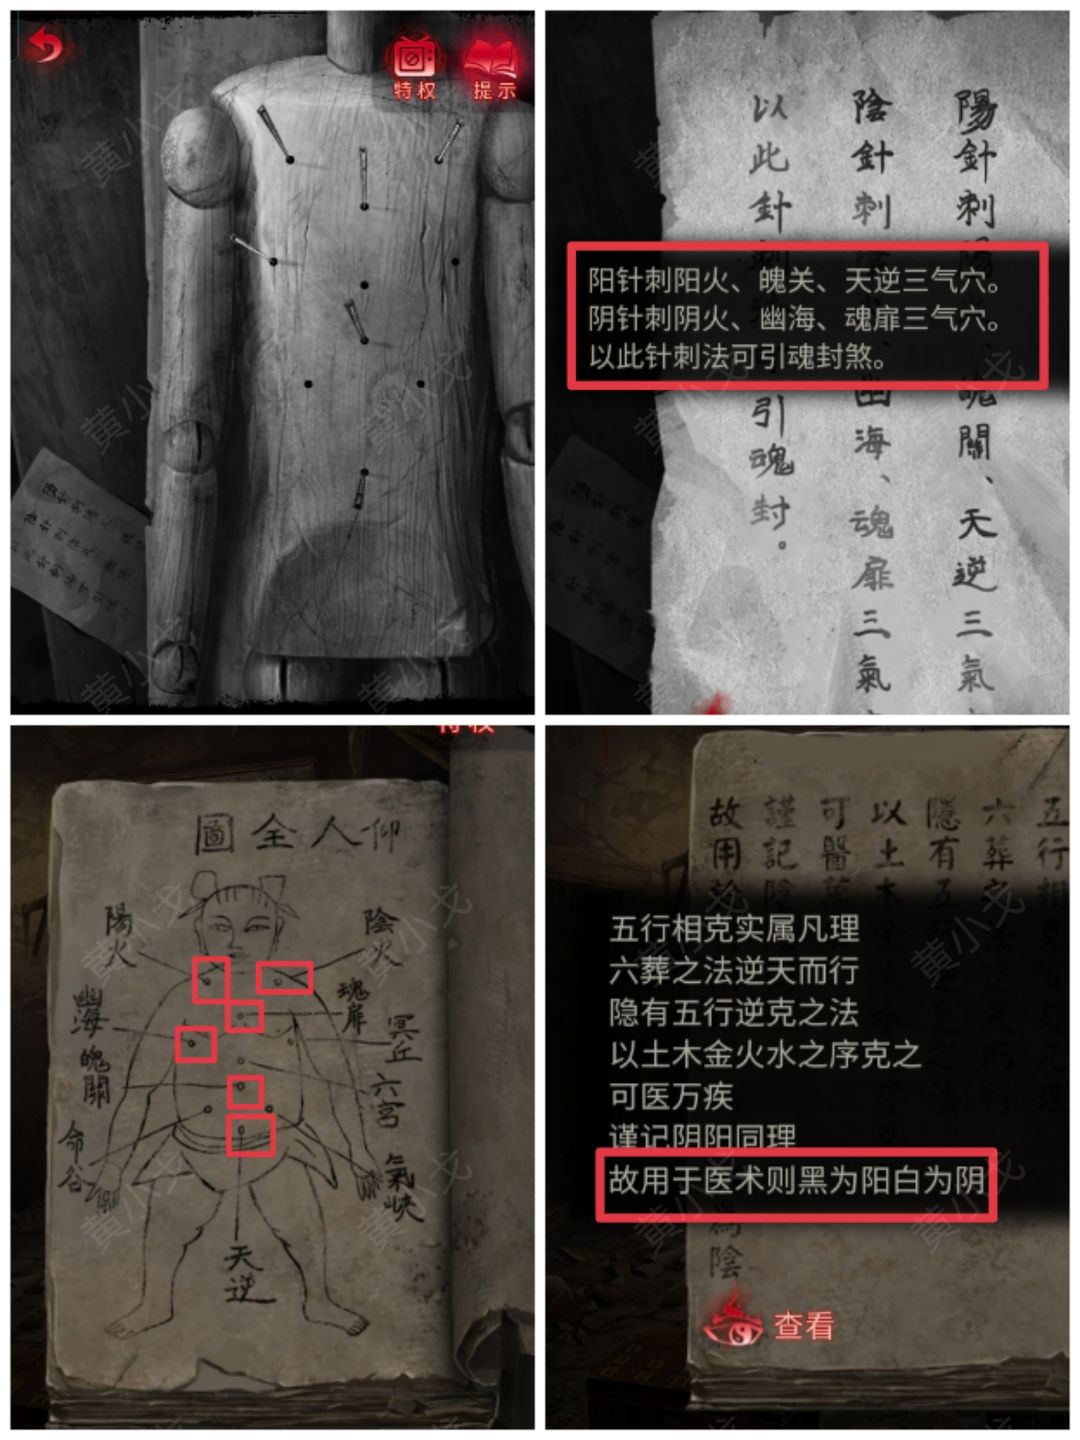 特权
提示
陽針刺
陰針刺
以此針刺
阳针刺阳火、魄关、天逆三气穴。
阴针刺阴火、幽海、魂扉三气穴。
以此针刺法可引魂封煞。
魄關、天逆三氣
幽海、魂扉三氣
引魂封。
特权
圖全人仰
陽火
陰火
幽海
魂扉
冥丘
魄關
六宮
命谷
氣峽
天逆
五行相
六葬之
隱有五
以土木
可醫萬
謹記陰
故用於
五行相克实属凡理
六葬之法逆天而行
隐有五行逆克之法
以土木金火水之序克之
可医万疾
谨记阴阳同理
故用于医术则黑为阳白为阴
為陰
查看
黄小戈